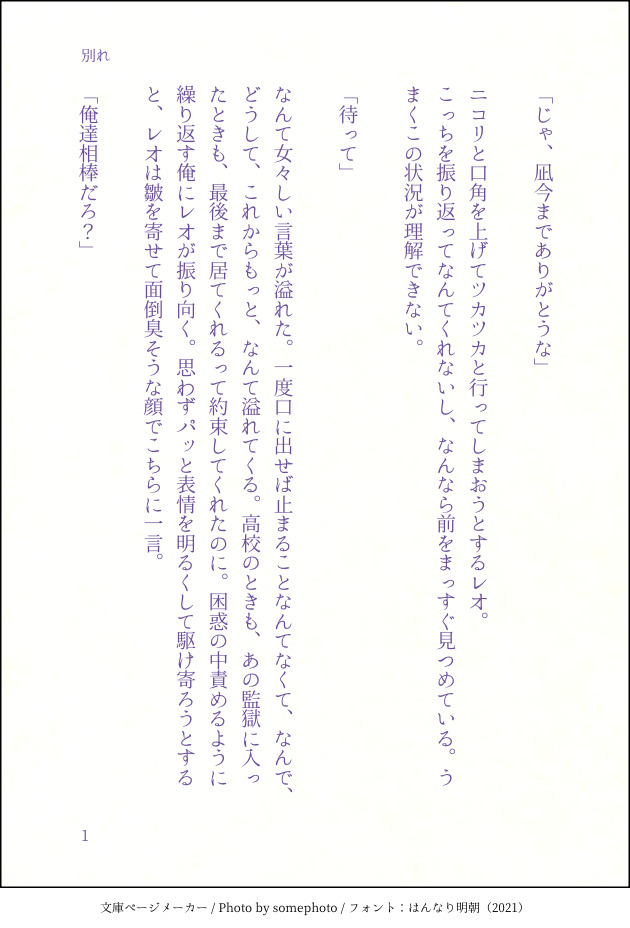 別れ
「じゃ、凪今までありがとうな」
ニコリと口角を上げてツカツカと行ってしまおうとするレオ。
こっちを振り返ってなんてくれないし、なんなら前をまっすぐ見つめている。う
まくこの状況が理解できない。
「待って」
なんて女々しい言葉が溢れた。一度口に出せば止まることなんてなくて、なんで、
どうして、これからもっと、なんて溢れてくる。高校のときも、あの監獄に入っ
たときも、最後まで居てくれるって約束してくれたのに。困惑の中責めるように
繰り返す俺にレオが振り向く。思わずパッと表情を明るくして駆け寄ろうとする
と、レオは皺を寄せて面倒臭そうな顔でこちらに一言。
「俺達相棒だろ?」
1
文庫ページメーカー / Photo by somephoto / フォント：はんなり明朝（2021）